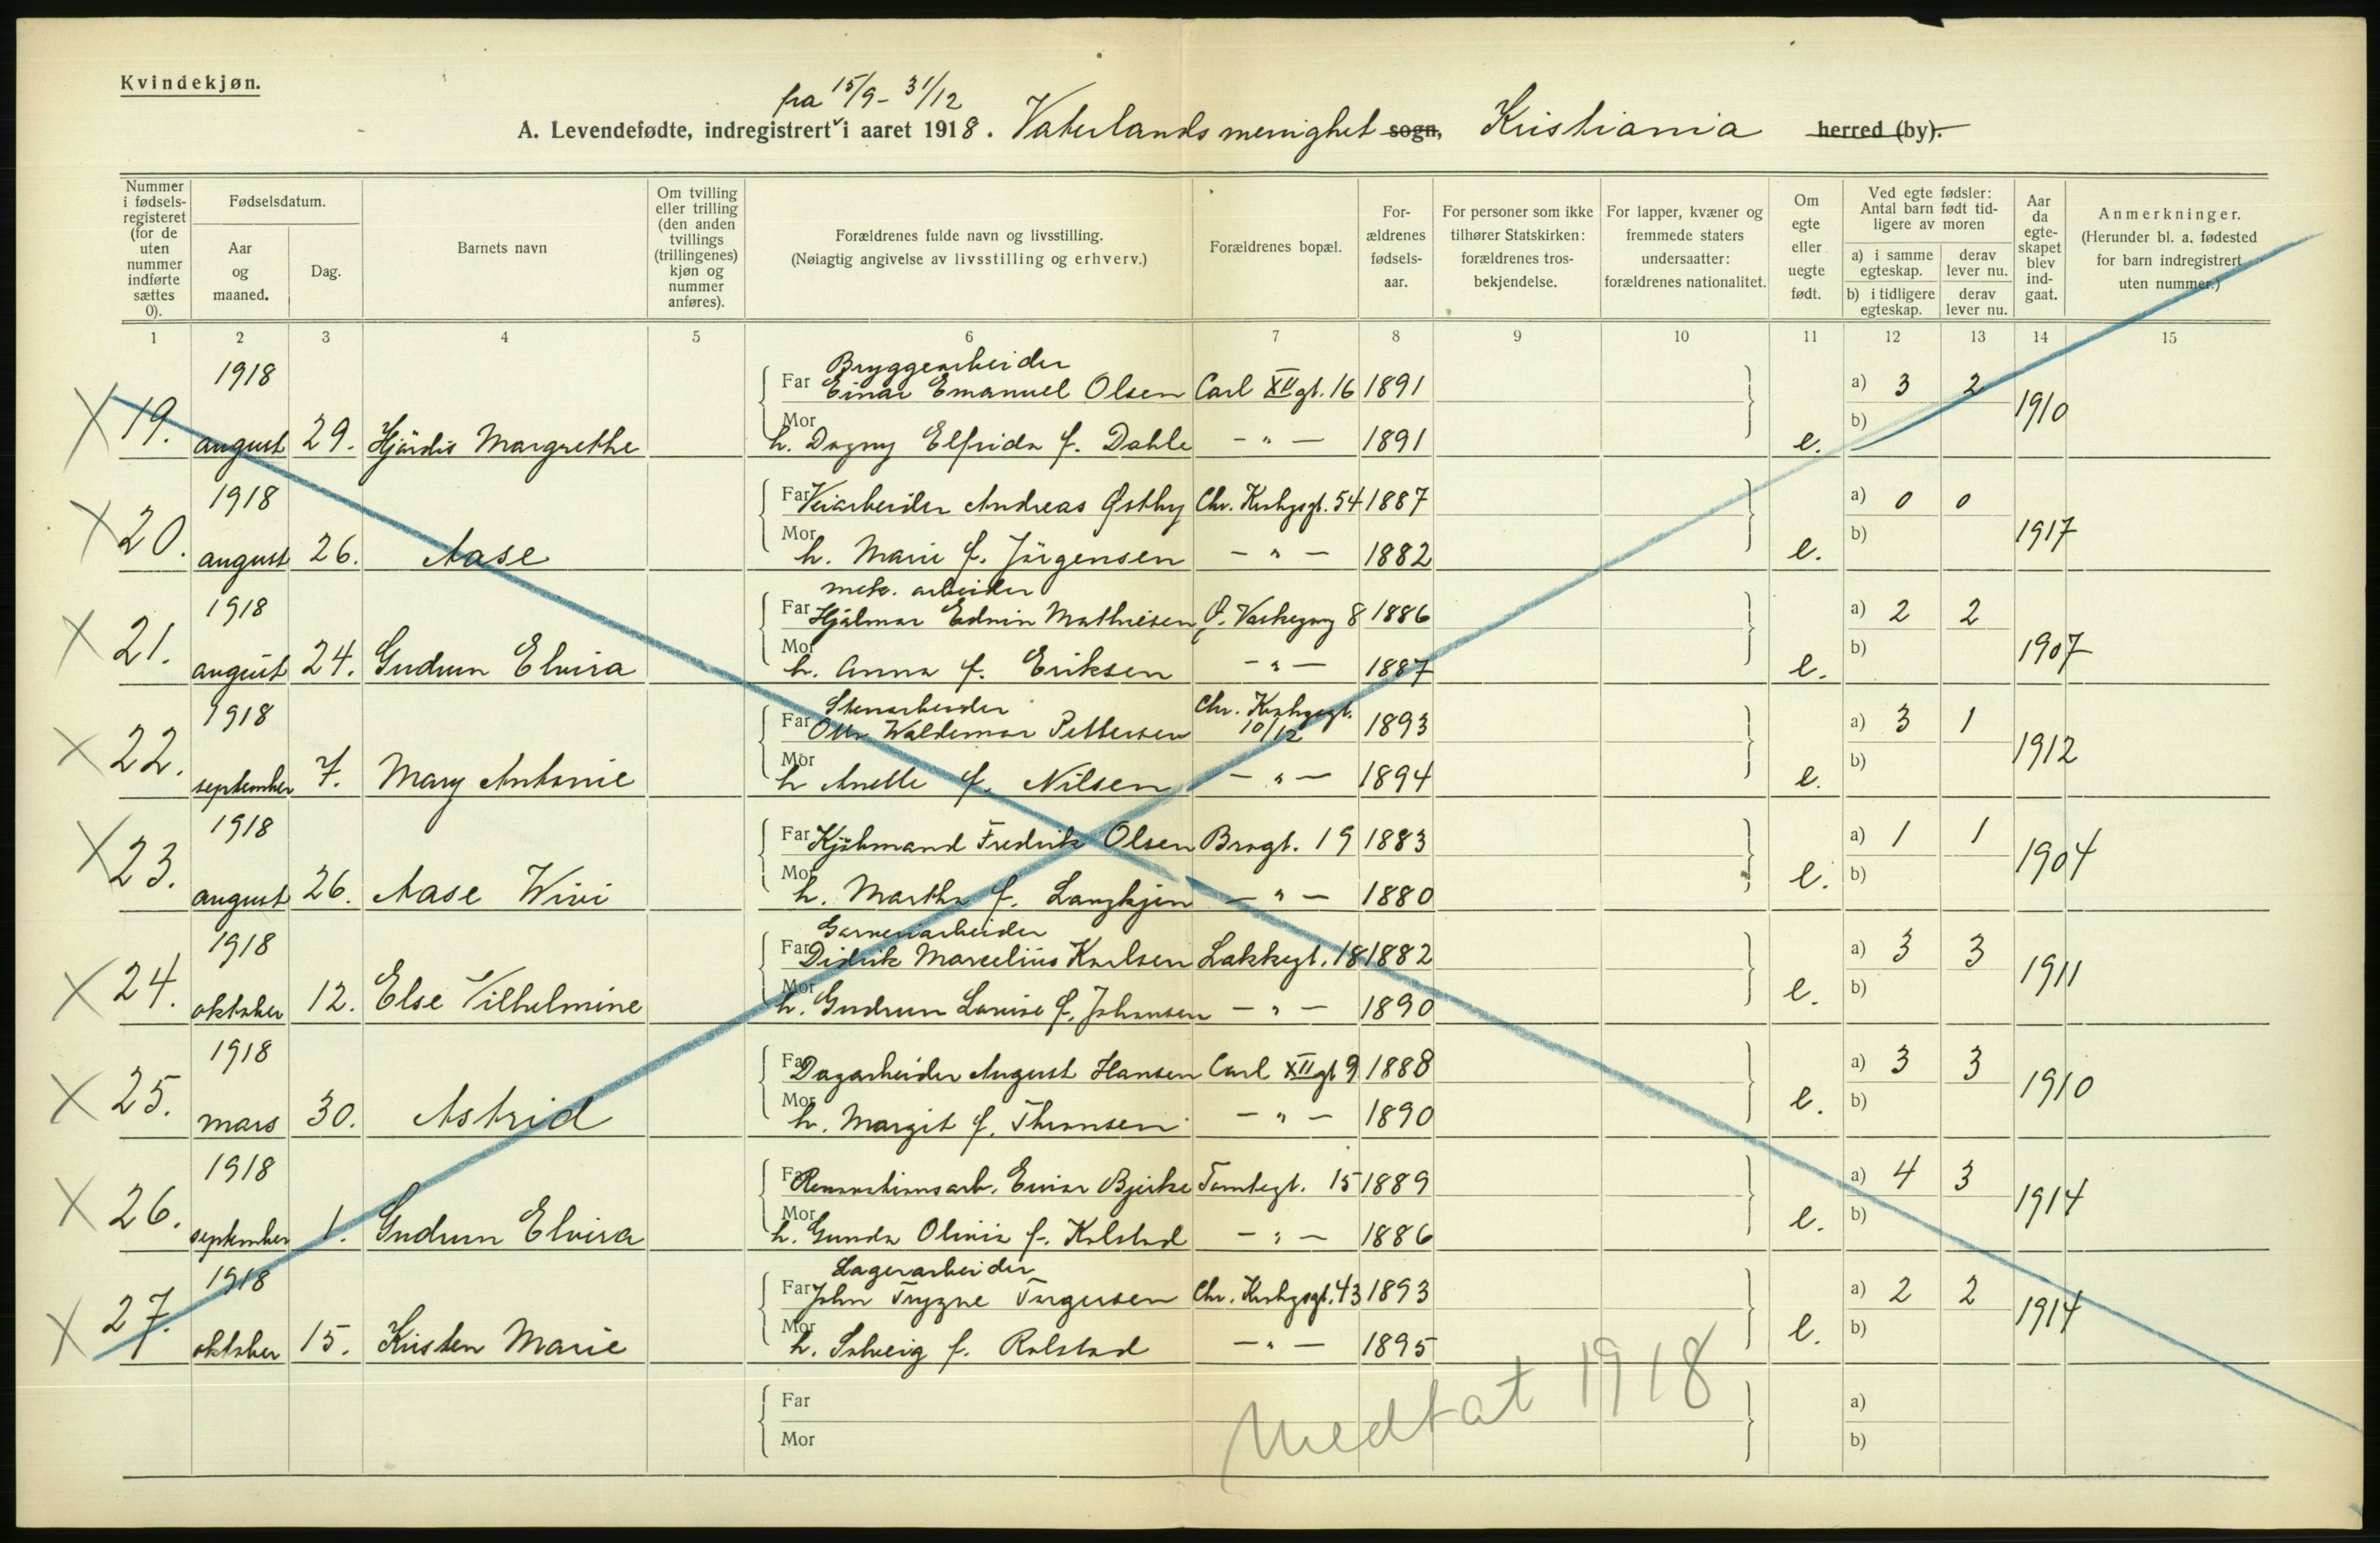 Kvindekjøn.
fra 15/9 - 31/12
A. Levendefødte, indregistrert i aaret 1918. Vaterlands menighet sogn, Kristiania herred (by).
Nummer i fødsels-registeret (for de uten nummer indførte sættes 0).
Fødselsdatum.
Aar og maaned.
Dag.
Barnets navn
Om tvilling eller trilling (den anden tvillings (trillingenes) kjøn og nummer anføres).
Forældrenes fulde navn og livsstilling.
(Nøiagtig angivelse av livsstilling og erhverv.)
Forældrenes bopæl.
For-ældrenes fødsels-aar.
For personer som ikke tilhører Statskirken: forældrenes tros-bekjendelse.
For lapper, kvæner og fremmede staters undersaatter: forældrenes nationalitet.
Om egte eller uegte født.
Ved egte fødsler: Antal barn født tid-ligere av moren
a) i samme egteskap. derav lever nu.
b) i tidligere egteskap. derav lever nu.
Aar da egte-skapet blev ind-gaat.
Anmerkninger.
(Herunder bl. a. fødested for barn indregistrert uten nummer.)
1 2 3 4 5 6 7 8 9 10 11 12 13 14 15
1918 Bryggearbeider
Far Einar Emanuel Olsen Carl XII gt. 16 1891 a) 3 2 1910
X 19. august 29. Hjördis Margrethe Mor h. Dagny Elfrida f. Dahle - " - 1891 e. b)
1918 Far Veiarbeider Andreas Østby Chr. Krohgsgt. 54 1887 a) 0 0 1917
X 20. august 26. Aase Mor h. Marie f. Jörgensen - " - 1882 e. b)
1918 mek. arbeider
Far Hjalmar Edvin Mathiesen Ø. Vaskegang 8 1886 a) 2 2 1907
X 21. august 24. Gudrun Elvira Mor h. Anna f. Eriksen - " - 1887 e. b)
1918 Stenarbeider Chr. Krohgsgt.
Far Otto Waldemar Pettersen 10/12 1893 a) 3 1 1912
X 22. september 7. Mary Antonie Mor h Anette f. Nilsen - " - 1894 e. b)
1918 Far Kjöbmand Fredrik Olsen Brogt. 19 1883 a) 1 1 1904
X 23. august 26. Aase Wivi Mor h. Martha f. Langkjen - " - 1880 e. b)
1918 Garveriarbeider
Far Didrik Marcelius Karlsen Lakkegt. 18 1882 a) 3 3 1911
X 24. oktober 12. Else Vilhelmine Mor h. Gudrun Lovise f. Johansen - " - 1890 e. b)
1918 Far Dagarbeider August Hansen Carl XII gt 9 1888 a) 3 3 1910
X 25. mars 30. Astrid Mor h. Margit f. Thronsen - " - 1890 e. b)
1918 Far Renovationsarb. Einar Bjerke Tomtegt. 15 1889 a) 4 3 1914
X 26. september 1. Gudrun Elvira Mor h. Gunda Olivia f. Kolstad - " - 1886 e. b)
1918 Lagerarbeider
Far John Trygve Torgersen Chr. Krohgsgt. 43 1893 a) 2 2 1914
X 27. oktober 15. Kristen Marie Mor h. Solveig f. Rolstad - " - 1895 e. b)
Far a)
Mor b)
Medtat 1918